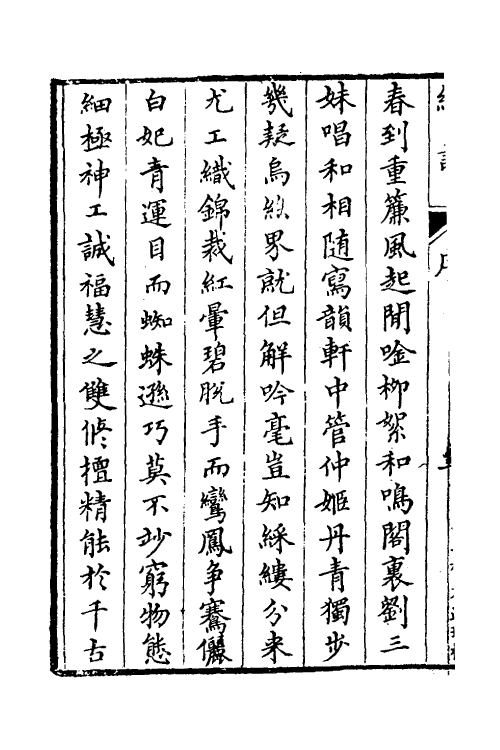 春到重簾風起閒唫柳絮和鳴閣裏劉三
妹唱和相随寫韻軒中管仲姬丹青獨步
幾疑烏絲界就但解吟毫豈知綵縷分来
尤工織錦裁紅暈碧脫手而鸞鳳争騫儷
白妃青運目而蜘蛛遜巧莫不竗窮物態
細極神工誠福慧之雙修擅精能於千古